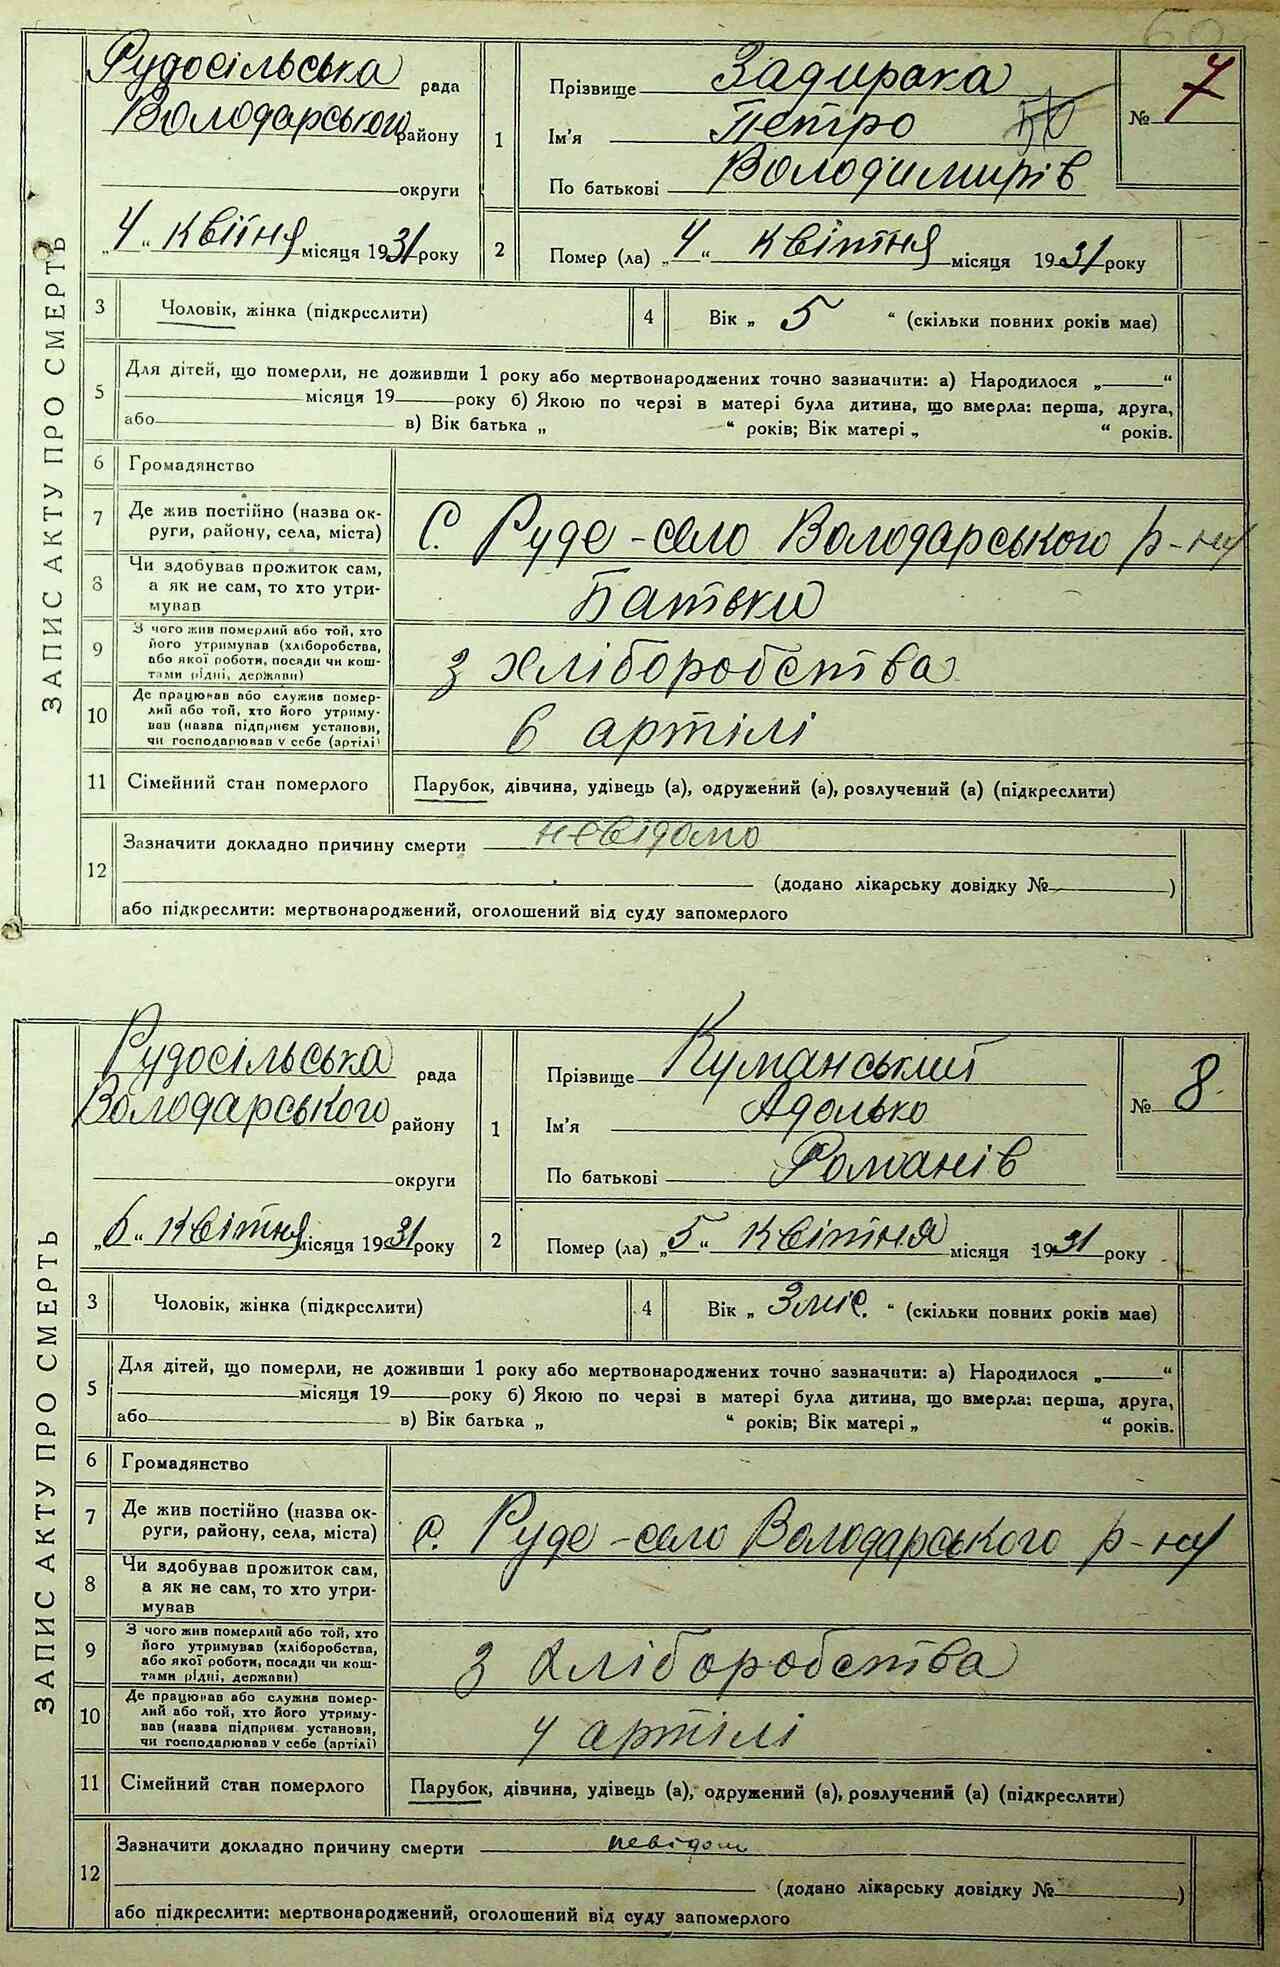 60
ЗАПИС АКТУ ПРО СМЕРТЬ
Рудосільська рада
Володарського району
округи
„4“ квітня місяця 1931 року
1
Прізвище Задирака
Ім'я Петро
По батькові Володимирів
№ 7
2 Помер (ла) „4“ квітня місяця 1931 року
3 Чоловік, жінка (підкреслити)
4 Вік „ 5 “ (скільки повних років має)
5 Для дітей, що померли, не доживши 1 року або мертвонароджених точно зазначити: а) Народилося „ “
місяця 19 року б) Якою по черзі в матері була дитина, що вмерла: перша, друга,
або в) Вік батька „ “ років; Вік матері „ “ років.
6 Громадянство
7 Де жив постійно (назва ок-
руги, району, села, міста) С. Руде-село Володарського р-ну
8 Чи здобував прожиток сам,
а як не сам, то хто утри-
мував Батьки
9 З чого жив померлий або той, хто
його утримував (хліборобства,
або якої роботи, посади чи кош-
тами рідні, держави) з хліборобства
10 Де працював або служив помер-
лий або той, хто його утриму-
вав (назва підприєм установи,
чи господарював у себе (артілі) в артілі
11 Сімейний стан померлого Парубок, дівчина, удівець (а), одружений (а), розлучений (а) (підкреслити)
12 Зазначити докладно причину смерти невідомо
(додано лікарську довідку № )
або підкреслити: мертвонароджений, оголошений від суду запомерлого
ЗАПИС АКТУ ПРО СМЕРТЬ
Рудосільська рада
Володарського району
округи
„6“ квітня місяця 1931 року
1
Прізвище Куманський
Ім'я Адолько
По батькові Романів
№ 8
2 Помер (ла) „5“ квітня місяця 1931 року
3 Чоловік, жінка (підкреслити)
4 Вік „ 3 міс. “ (скільки повних років має)
5 Для дітей, що померли, не доживши 1 року або мертвонароджених точно зазначити: а) Народилося „ “
місяця 19 року б) Якою по черзі в матері була дитина, що вмерла: перша, друга,
або в) Вік батька „ “ років; Вік матері „ “ років.
6 Громадянство
7 Де жив постійно (назва ок-
руги, району, села, міста) с. Руде-село Володарського р-ну
8 Чи здобував прожиток сам,
а як не сам, то хто утри-
мував
9 З чого жив померлий або той, хто
його утримував (хліборобства,
або якої роботи, посади чи кош-
тами рідні, держави) з хліборобства
10 Де працював або служив помер-
лий або той, хто його утриму-
вав (назва підприєм. установи,
чи господарював у себе (артілі) у артілі
11 Сімейний стан померлого Парубок, дівчина, удівець (а), одружений (а), розлучений (а) (підкреслити)
12 Зазначити докладно причину смерти невідом
(додано лікарську довідку № )
або підкреслити: мертвонароджений, оголошений від суду запомерлого